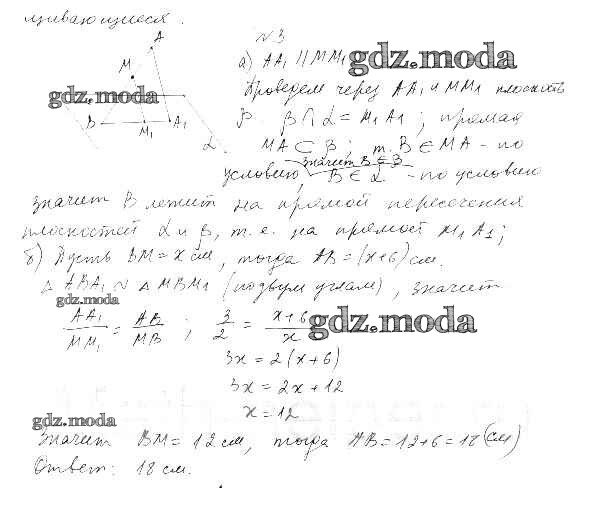 щивающиеся.
N 3
A
а) AA₁ || MM₁
gdz.moda
M
gdz.moda
Проведем через AA₁ и MM₁ плоскость
β. β ∩ α = M₁A₁; прямая
B M₁ A₁
α
MA ⊂ β; т. B ∈ MA - по
условию, значит B ∈ β
B ∈ α - по условию
значит B лежит на прямой пересечения
плоскостей α и β, т.е. на прямой M₁A₁;
б) Пусть BM = x см, тогда AB = (x+6) см.
△ ABA₁ ∾ △ MBM₁ (по двум углам), значит
gdz.moda
AA₁/MM₁ = AB/MB ; 3/2 = x+6/x
gdz.moda
3x = 2(x+6)
3x = 2x + 12
x = 12
gdz.moda
Значит BM = 12 см, тогда AB = 12+6 = 18 (см)
Ответ: 18 см.